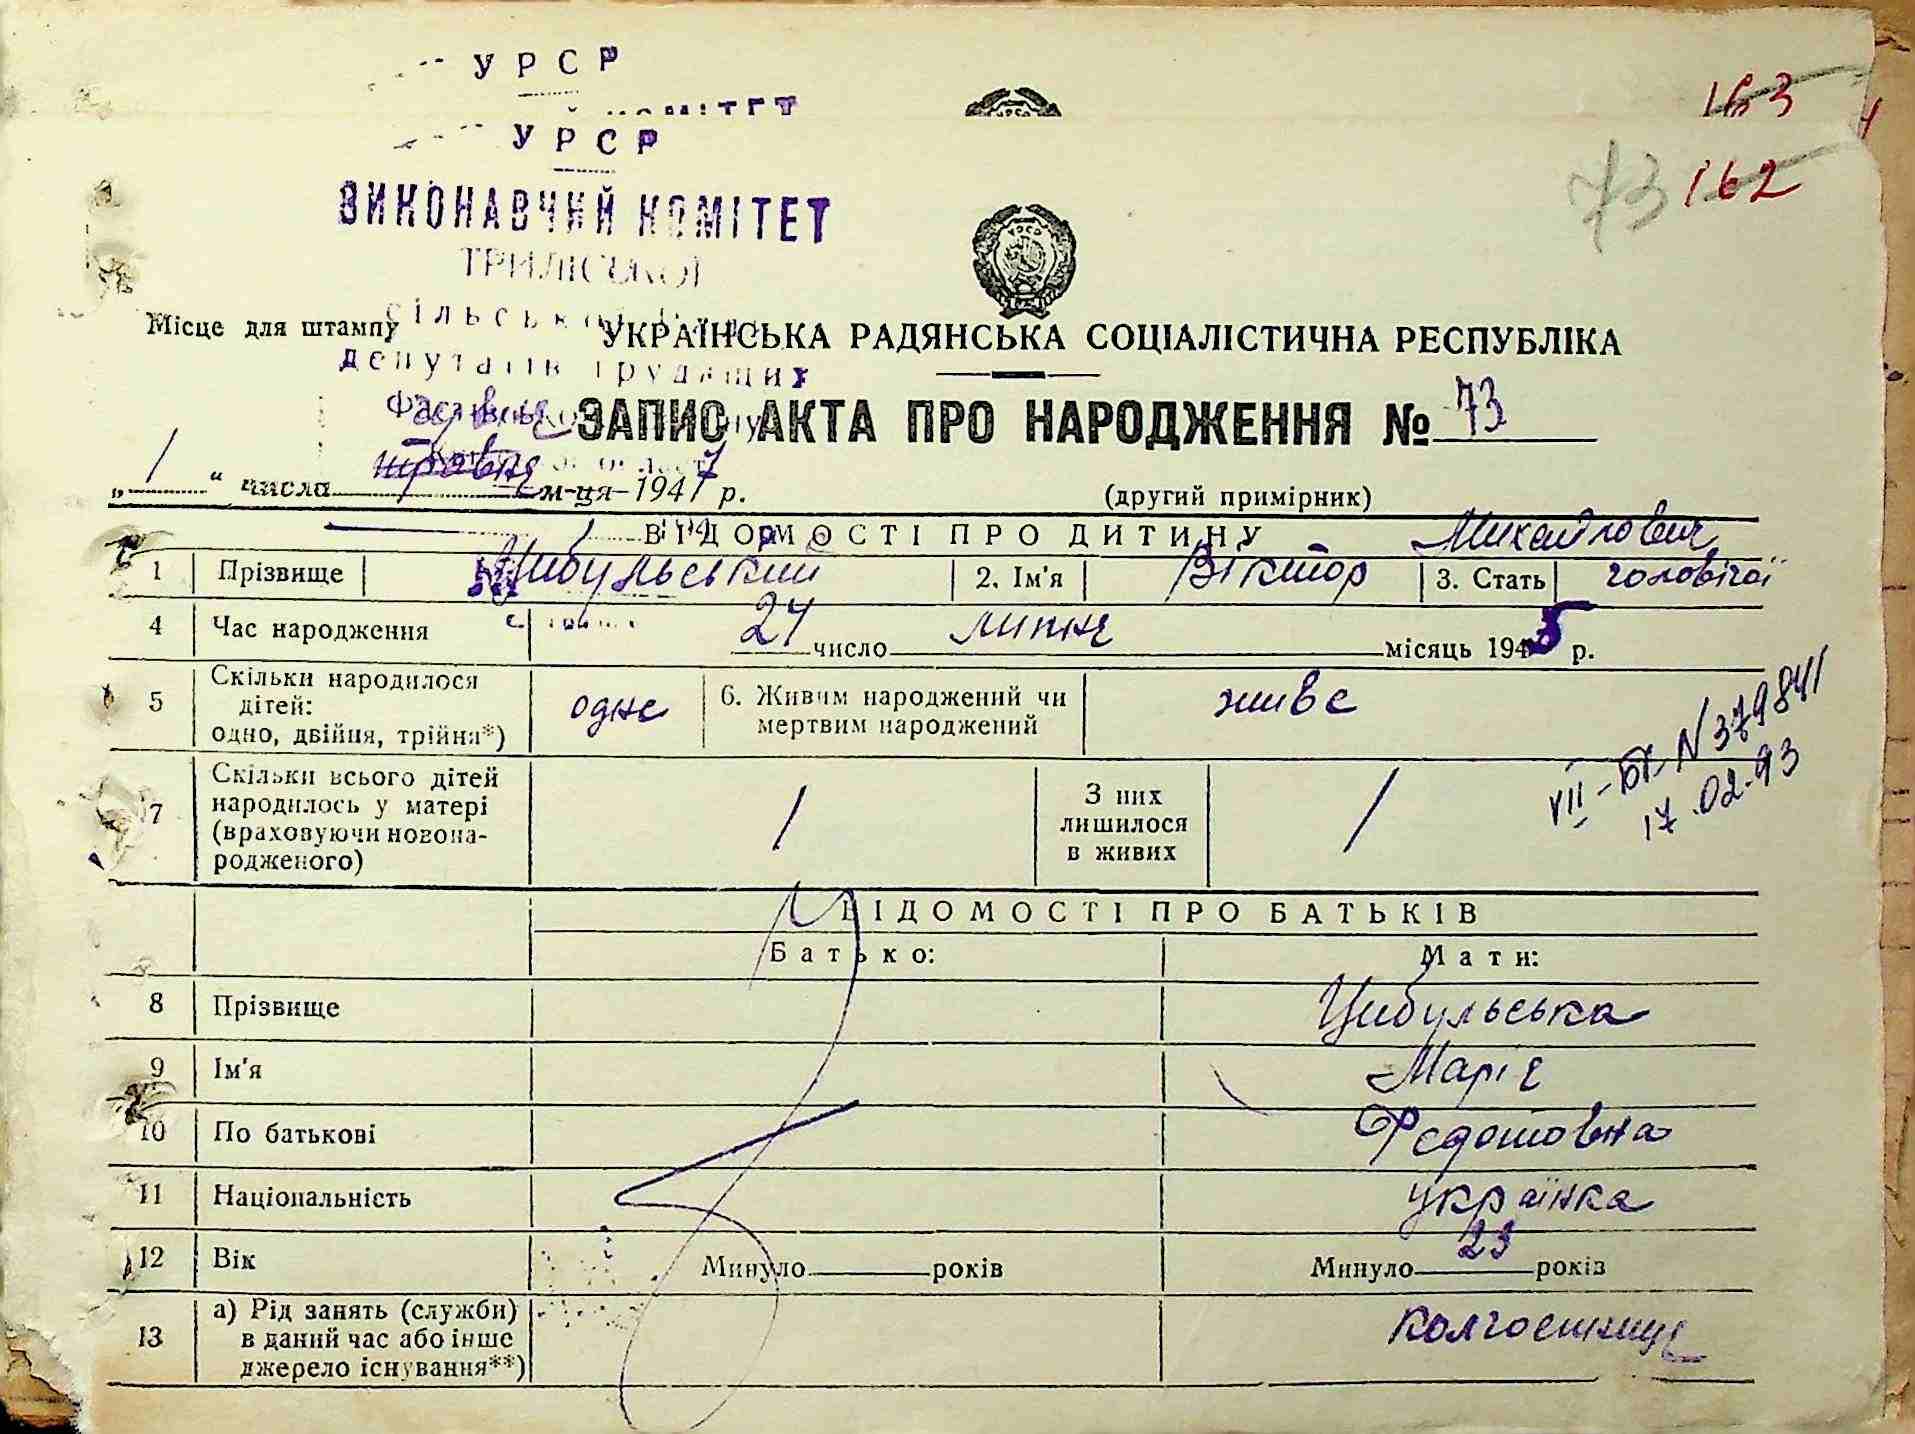 УРСР
КОМІТЕТ
163
УРСР
73 162
ВИКОНАВЧИЙ КОМІТЕТ
ТРИЛІСЬКОЇ
Місце для штампу сільської
УКРАЇНСЬКА РАДЯНСЬКА СОЦІАЛІСТИЧНА РЕСПУБЛІКА
депутатів трудящих
ЗАПИС АКТА ПРО НАРОДЖЕННЯ № 73
„ 1 “ числа травня м-ця 1947 р. (другий примірник)
ВІДОМОСТІ ПРО ДИТИНУ Михайлович
1 Прізвище Цибульський 2. Ім'я Віктор 3. Стать чоловічої
4 Час народження 24 число липня місяць 1945 р.
5 Скільки народилося дітей: одно, двійня, трійня*) одне 6. Живим народжений чи мертвим народжений живе
VII-БК N 379841
17.02.93
7 Скільки всього дітей народилось у матері (враховуючи новонародженого) 1 З них лишилося в живих 1
ВІДОМОСТІ ПРО БАТЬКІВ
Батько: Мати:
8 Прізвище Цибульська
9 Ім'я Марія
10 По батькові Федотовна
11 Національність українка
12 Вік Минуло років Минуло 23 років
13 а) Рід занять (служби) в даний час або інше джерело існування**) колгоспниця